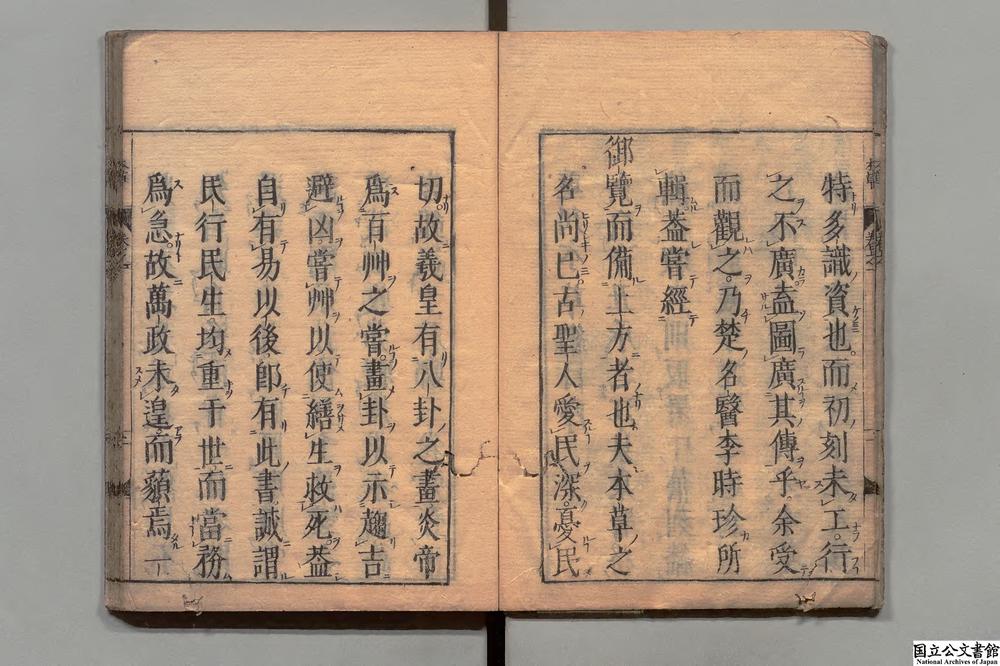 特多識資也而初刻未工行
之不廣盍圖廣其傳乎余受
而觀之乃楚名醫李時珍所
輯葢嘗經
御覽而備上方者也夫本草之
名尚已古聖人愛民深憂民
切故羲皇有八卦之畫炎帝
爲百艸之嘗畫卦以示趨吉
避凶嘗艸以使繕生救死葢
自有易以後卽有此書誠謂
民行民生均重于世而當務
爲急故萬政未遑而藾焉
国立公文書館
National Archives of Japan